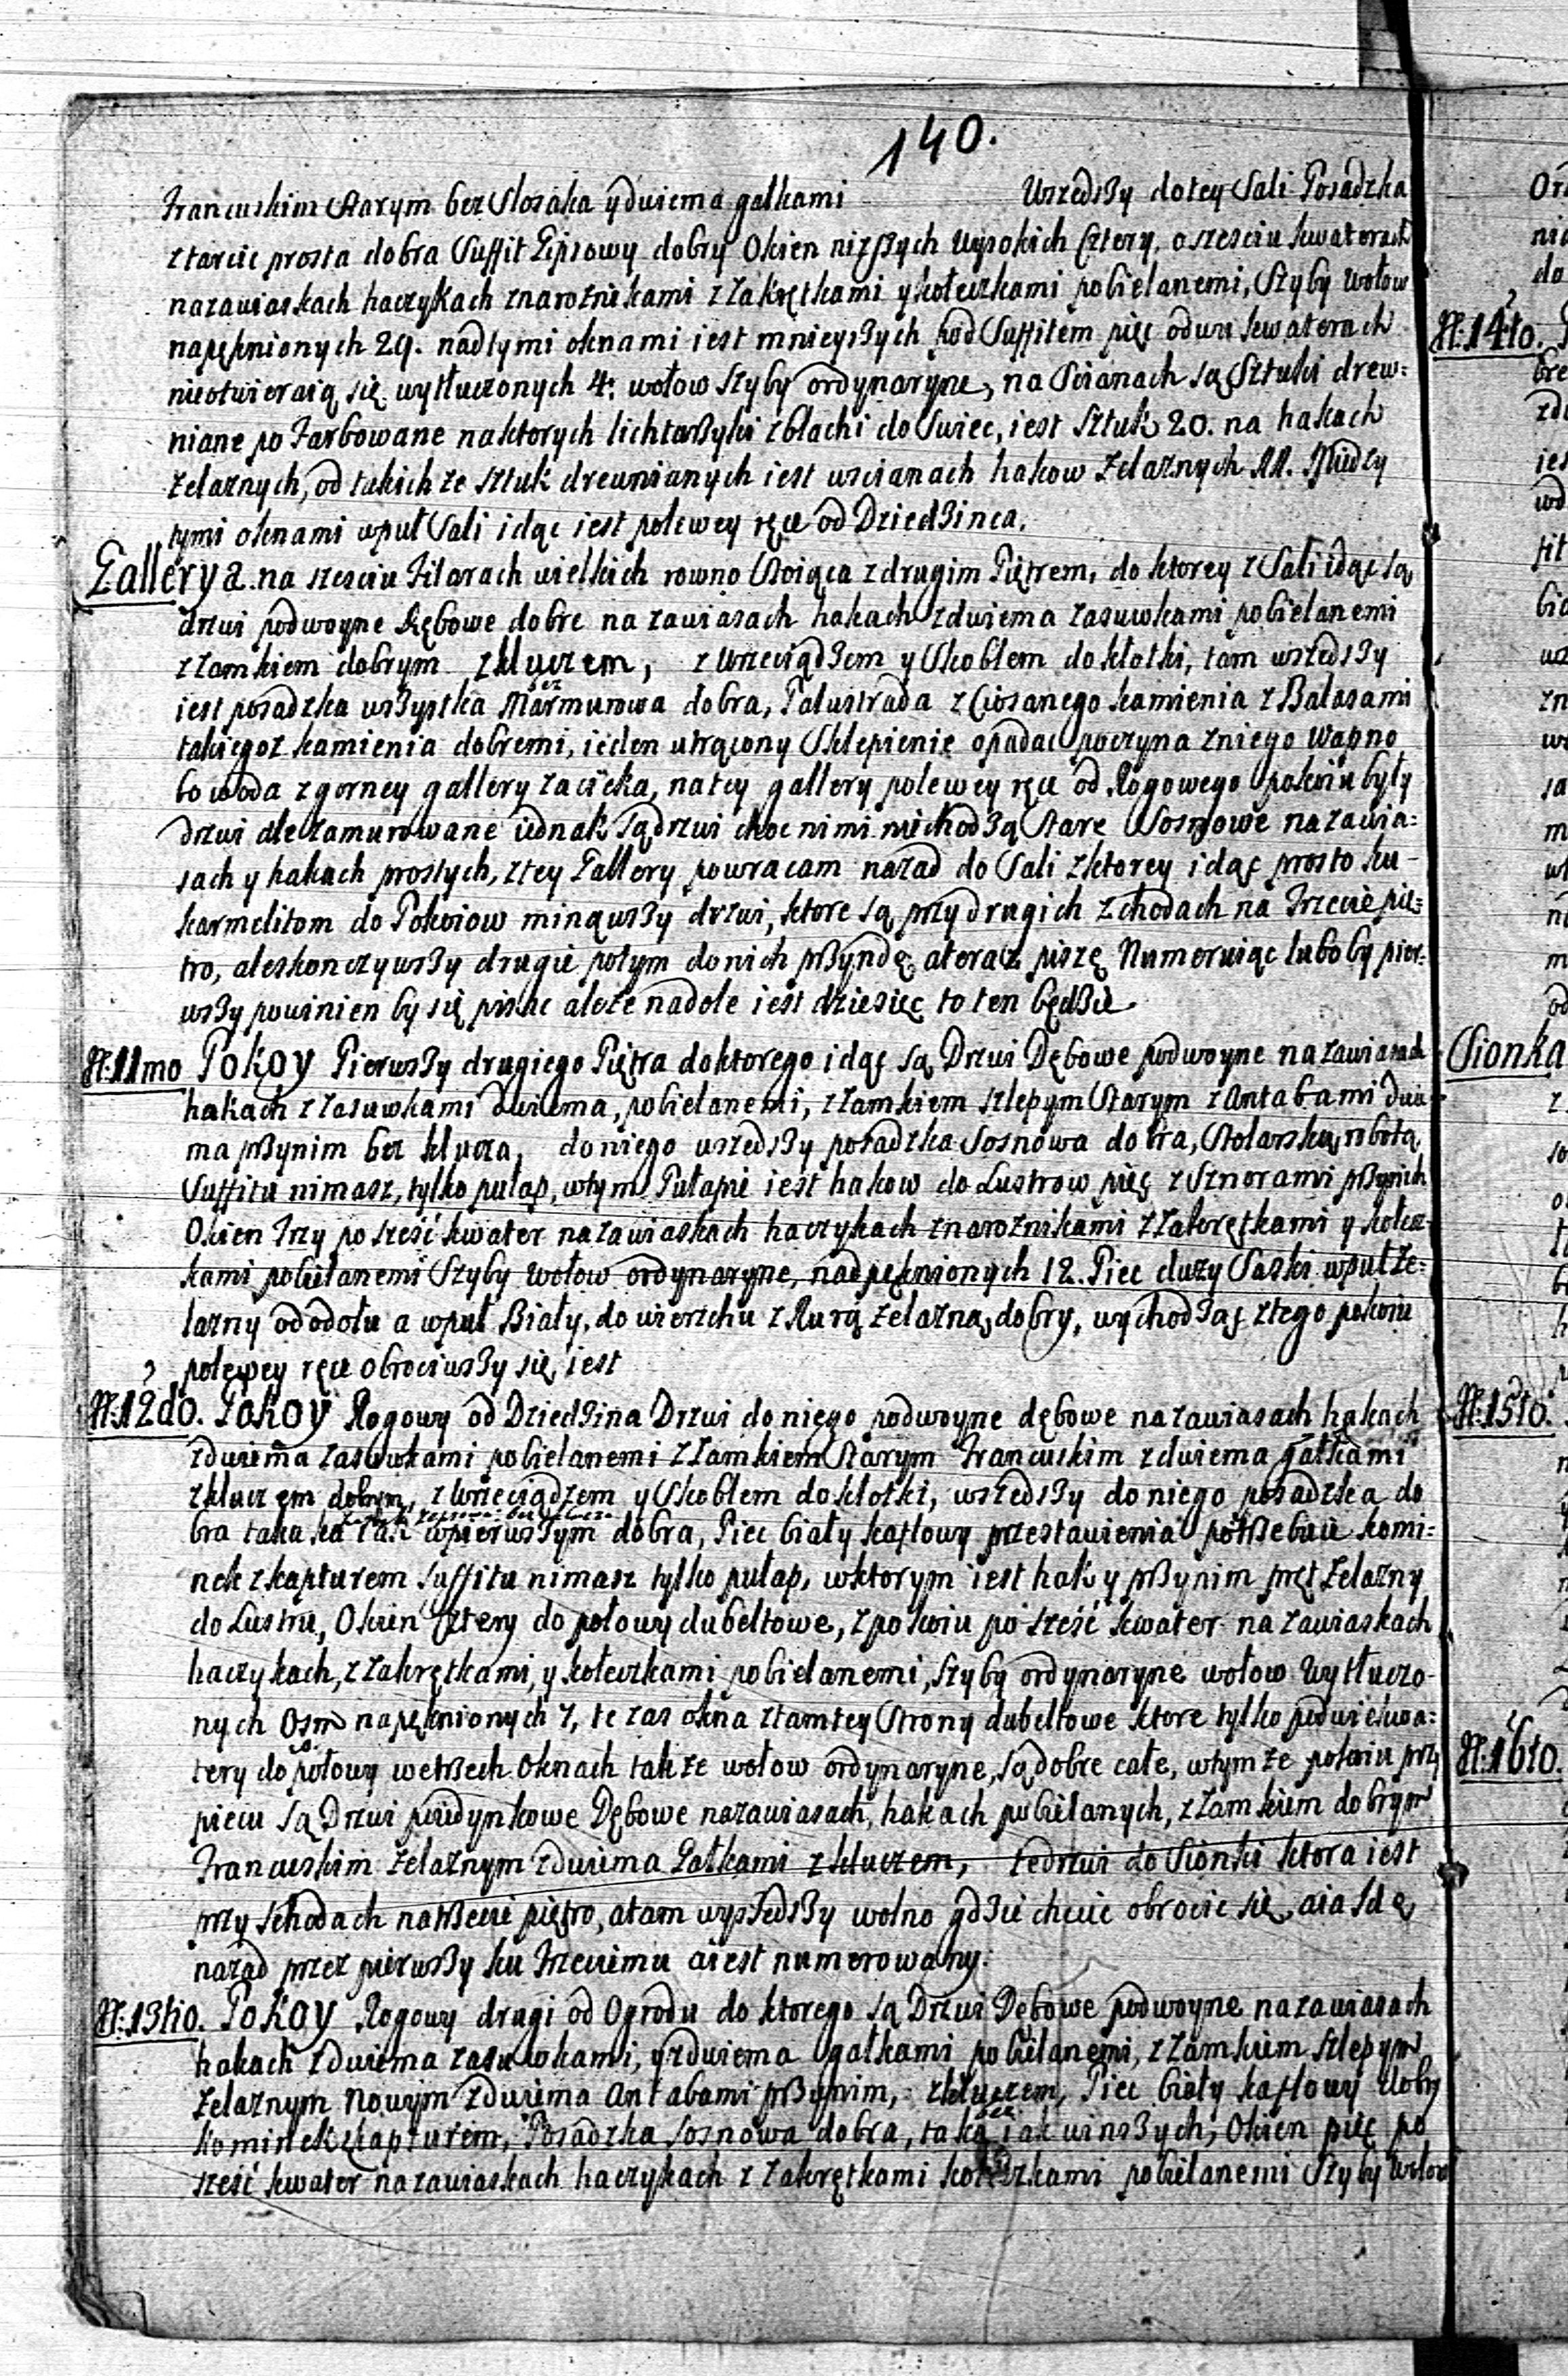 140.
Francuskim starym bez klosaka y dwiema gałkami Wszedszy do tey Sali Posadzka
z tarcic prosta dobra Suffit Gipsowy dobry Okien niższych wysokich Cztery, o szesciu kwaterach
na zawiaskach haczykach z narożnikami z zakrętkami y kołeczkami pobielanemi, Szyby wołow
napęknionych 29. nad tymi oknami iest mnieyszych pod Suffitem pięc o dwu kwaterach
nieotwieraią się wytłuczonych 4: wołow szyby ordynaryne, na Scianach są Sztuki drew:
niane po farbowane na ktorych lichtarzyki z blachi do Swiec, iest Sztuk 20. na hakach
żelaznych, od takich że sztuk drewnianych iest w scianach hakow żelaznych Między
tymi oknami w puł Sali idąc iest po lewey ręce od Dziedzinca,
Gallerya. na szesciu Filarach wielkich rowno stoiąca z drugim Piętrem, do ktorey z Sali idąc są
drzwi podwoyne dębowe dobre na zawiasach hakach z dwiema zasuwkami pobielanemi
z zamkiem dobrym z kluczem, z wrzeciądzem y Skoblem do kłotki, tam wszedszy
bez
iest posadzka wszystka Marmurowa dobra, Balustrada z Ciosanego kamienia z Balasami
takiegoz kamienia dobremi, ieden utrącony Sklepienie opadac poczyna z niego wapno
bo woda z gorney gallery zacieka, na tey gallery po lewey ręce od Rogowego pokoiu były
drzwi ale zamurowane iednak są drzwi choc nimi niechodzą stare Sosnowe na zawia:
sach y hakach prostych, z tey Gallery powracam nazad do Sali z ktorey idąc prosto ku
karmelitom do Pokoiow minąwszy drzwi, ktore są przy drugich zchodach na Trzecie pię:
tro, ale skonczywszy drugie potym do nich przyndę a teraz piszę Numeruiąc lubo by pier:
wszy powinien by się pisac ale że na dole iest dziesięc to ten będzie
N: 11mo Pokoy Pierwszy drugiego Piętra do ktorego idąc są Drzwi Dębowe podwoyne na zawiasach
hakach z zasuwkami dwiema, pobielanemi, z zamkiem szlepym starym z Antabami dwie
ma przynim bez klucza, do niego wszedszy posadzka Sosnowa dobra, Stolarską robotą
Suffitu nimasz, tylko pułap, w tym Pułapie iest hakow do Lustrow pięc z Sznorami przynich
Okien Trzy po sześć kwater na zawiaskach haczykach z narożnikami z zakrętkami y kołecz
kami pobielanemi Szyby wołow ordynaryne, nadpęknionych 12. Piec duży Saski w puł że:
lazny od dołu a w puł Biały, do wierzchu z Rurą żelazną dobry, wychodząc z tego pokoiu
po lewey ręce obrociwszy się iest
N: 12do. Pokoy Rogowy od Dziedzina Drzwi do niego podwoyne dębowe na zawiasach hakach
z dwiema zasuwkami pobielanemi z zamkiem starym Francuskim z dwiema gałkami
z kluczem dobrym, z wrzeciądzem y Skoblem do kłotki, wszedszy do niego posadzka do
bra taka w pierwszym dobra, Piec biały kaflowy przestawienia potrzebuie komi:
nek z kapturem Suffitu nimasz tylko pułap, w ktorym iest hak y przynim pręt żelazny
do Lustru, Okien Cztery do połowy dubeltowe, z pokoiu po sześć kwater na zawiaskach
haczykach, z zakrętkami, y kołeczkami pobielanemi, szyby ordynaryne wołow wytłuczo
nych Osm napęknionych 7, te zas okna z tamtey strony dubeltowe ktore tylko po dwie kwa:
tery do połowy we trzech Oknach także wołow ordynaryne, są dobre całe, w tym że pokoiu przy
piecu są Drzwi poiedynkowe Dębowe na zawiasach, hakach pobielanych, z zamkiem dobrym
Francuskim żelaznym z dwiema Gałkami z kluczem, te drzwi do Sionki ktora iest
przy schodach na trzecie piętro, a tam wyszedszy wolno gdzie chcic obrocic się, a ia Idę,
nazad przez pierwszy ku Trzeciemu a iest numerowany:
N: 13tio. Pokoy Rogowy drugi od Ogrodu do ktorego są Drzwi Dębowe podwoyne na zawiasach
hakach z dwiema zasuwkami, y z dwiema gałkami pobielanemi, z zamkiem szlepym
żelaznym nowym z dwiema Antabami przynim, z kluczem, Piec biały kaflowy dobry
bez
Kominek z kapturem, Posadzka sosnowa dobra, taka iak w inszych, Okien pięc po
sześć kwater na zawiaskach haczykach z zakrętkami kołeczkami pobielanemi Szyby wołow
N: 14to.
Sionka
N: 15to.
N: 16to.